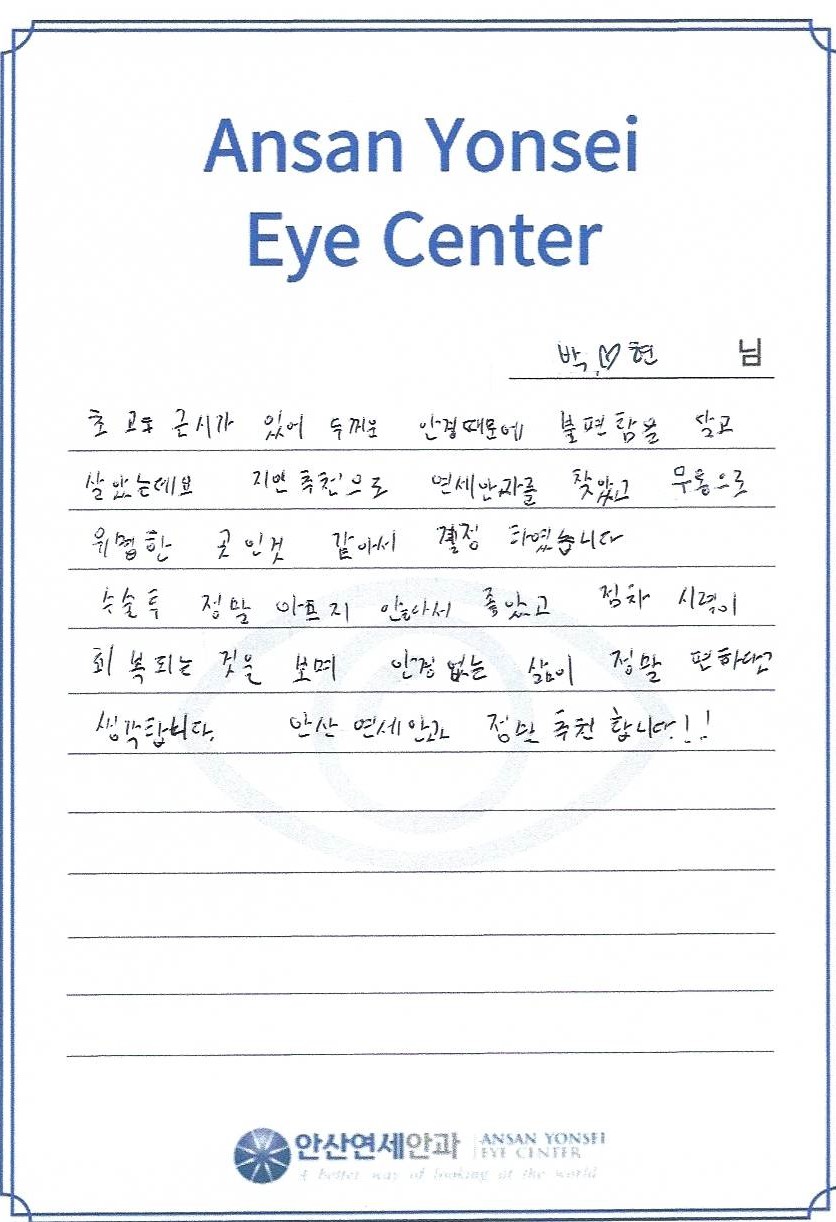 Ansan Yonsei
Eye Center
박♡현 님
초 고도 근시가 있어 두꺼운 안경때문에 불편함을 달고
살았는데요 지인 추천으로 연세안과를 찾았고 무통으로
유명한 곳 인것 같아서 결정 하였습니다
수술 후 정말 아프지 않아서 좋았고 점차 시력이
회복되는 것을 보며 안경 없는 삶이 정말 편하다고
생각합니다. 안산 연세안과 정말 추천 합니다!!
안산연세안과 ANSAN YONSEI
EYE CENTER
A better way of looking at the world